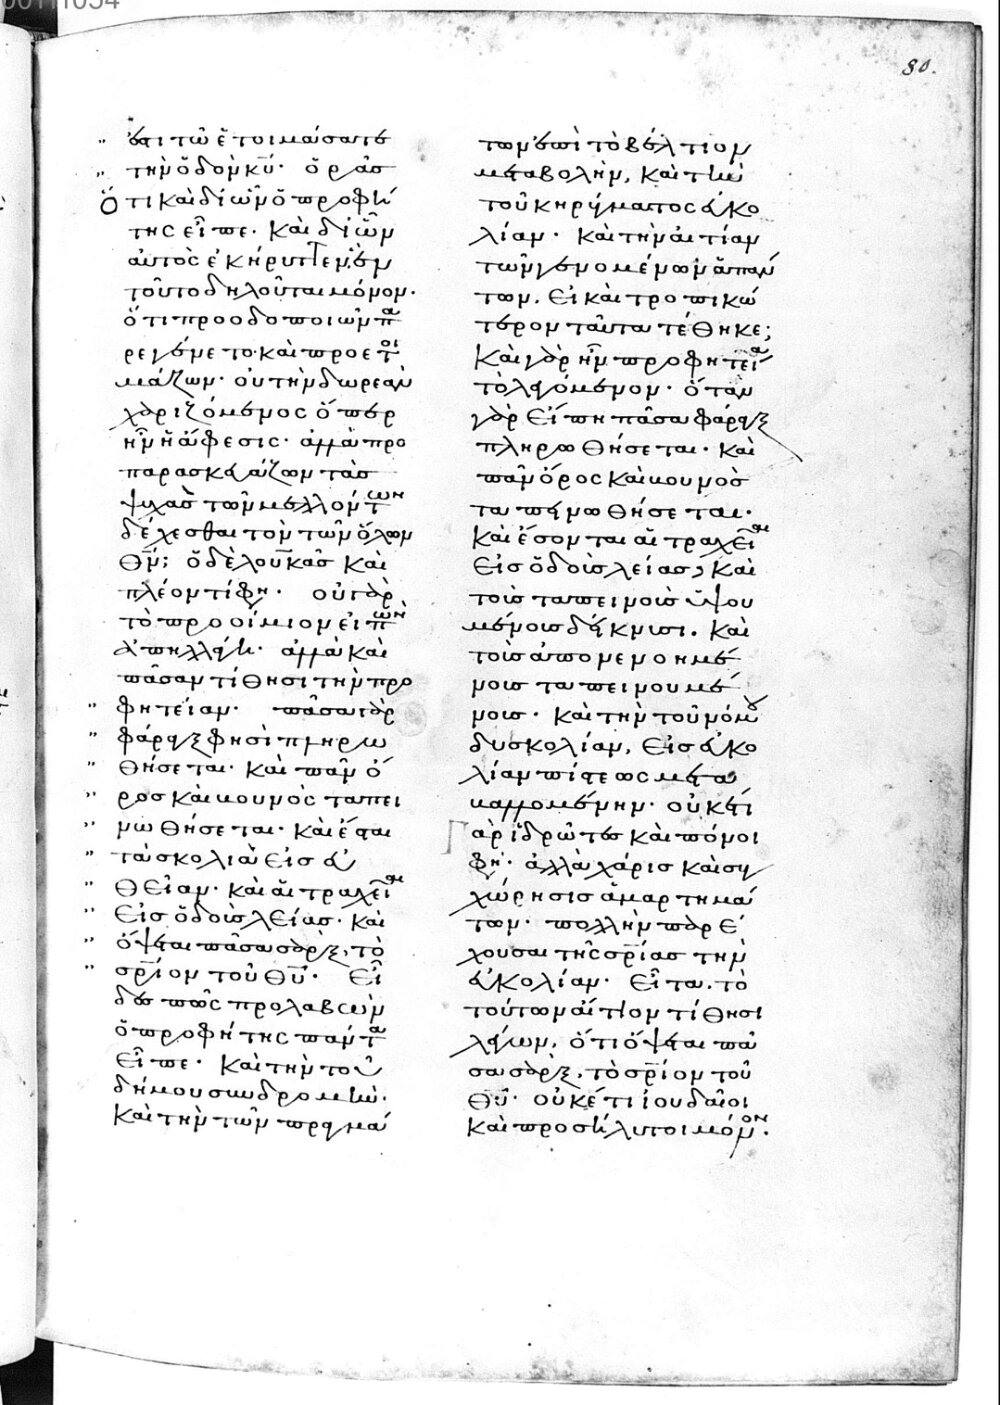 80.
ἐστι τῶ ἑτοιμάσατε
τὴν ὁδὸν κῡ· ὁρᾶς
ὅτι καὶ δι ὧν ὁ προφή
της εἶπε· καὶ δι ὧν
αὐτὸς ἐκήρυττεν, ἐν
τοῦτο δηλοῦται μόνον·
ὅτι προοδοποιῶν πα
ρεγένετο· καὶ προετοι
μάζων· οὐ τὴν δωρεὰν
χαριζόμενος ὅπερ
ἦν ἡ ἄφεσις· ἀλλὰ προ
παρασκευάζων τὰς
ψυχὰς τῶν μελλόντων
δέχεσθαι τὸν τῶν ὅλων
θν̄; ὁ δὲ λουκᾶς καὶ
πλέον τί φη· οὐ γὰρ
τὸ προοίμιον εἰπὼν
ἀπηλλάγη· ἀλλὰ καὶ
πᾶσαν τίθησι τὴν προ
φητείαν· πᾶσα γὰρ
φάραγξ φησὶ πληρω
θήσεται· καὶ πᾶν ὄ
ρος καὶ βουνὸς ταπει
νωθήσεται· καὶ ἔσται
τὰ σκολιὰ εἰς εὐ
θεῖαν· καὶ αἱ τραχεῖαι
εἰς ὁδοὺς λείας· καὶ
ὄψεται πᾶσα σὰρξ, τὸ
σρ̄ιον τοῦ θῡ· εἶ
δες πῶς προλαβὼν
ὁ προφήτης πάντα
εἶπε· καὶ τὴν τοῦ
δήμου συνδρομὴν·
καὶ τὴν τῶν πραγμά
των ἐπὶ τὸ βέλτιον
μεταβολὴν, καὶ τὴν
τοῦ κηρύγματος εὐκο
λίαν· καὶ τὴν αἰτίαν
τῶν γενομένων ἁπάν
των, εἰ καὶ τροπικώ
τερον ταῦτα τέθηκε;
καὶ γὰρ ἦν προφητεία
τὸ λεγόμενον· ὅταν
γὰρ εἴπη πᾶσα φάραγξ
πληρωθήσεται· καὶ
πᾶν ὄρος καὶ βουνὸς
ταπεινωθήσεται·
καὶ ἔσονται αἱ τραχεῖαι
εἰς ὁδοὺς λείας, καὶ
τοὺς ταπεινοὺς ὑψου
μένους δείκνυσι. καὶ
τοὺς ἀπονενοημέ
νους ταπεινουμέ
νους· καὶ τὴν τοῦ νόμου
δυσκολίαν, εἰς εὐκο
λίαν πίστεως μετα
βαλλομένην· οὐκέτι
γὰρ ἱδρῶτες καὶ πόνοι
φη· ἀλλὰ χάρις καὶ συγ
χώρησις ἁμαρτημά
των· πολλὴν παρέ
χουσα τῆς σρ̄ίας τὴν
εὐκολίαν· εἶτα, τὸ
τούτων αἴτιον τίθησι
λέγων, ὅτι ὄψεται πᾶ
σα σὰρξ, τὸ σρ̄ιον τοῦ
θῡ· οὐκέτι ἰουδαῖοι
καὶ προσήλυτοι μόνον·